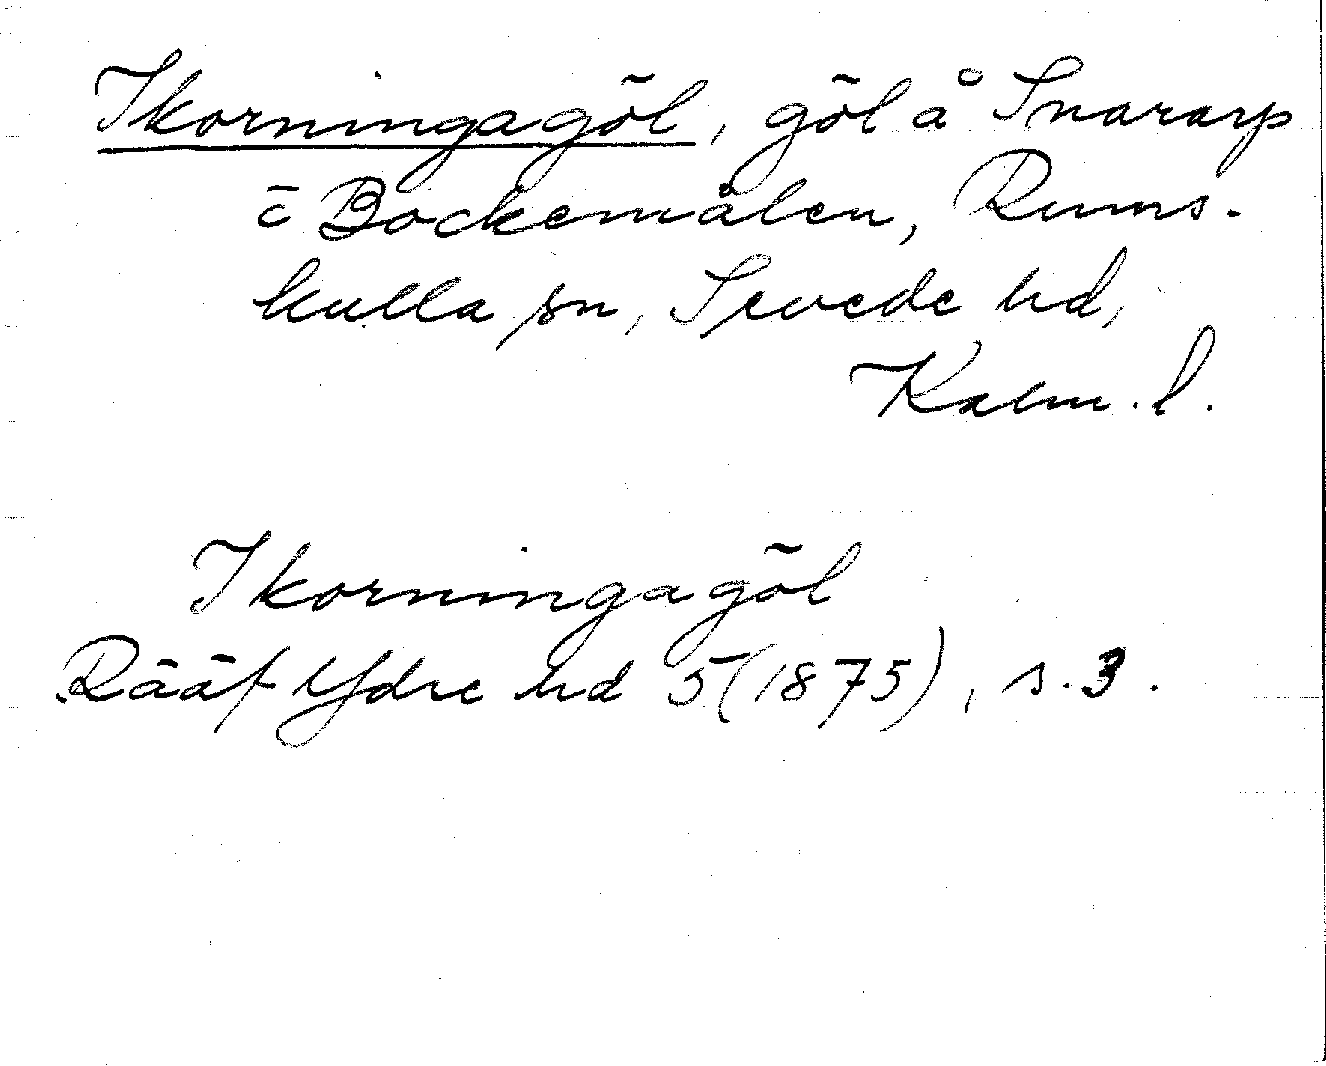 Ikorningagöl, göl å Snararp
ō Bockemålen, Rums-
kulla sn, Sevede hd,
Kalm. l.
Ikorningagöl
Rääf Ydre hd 5 (1875), s. 3.